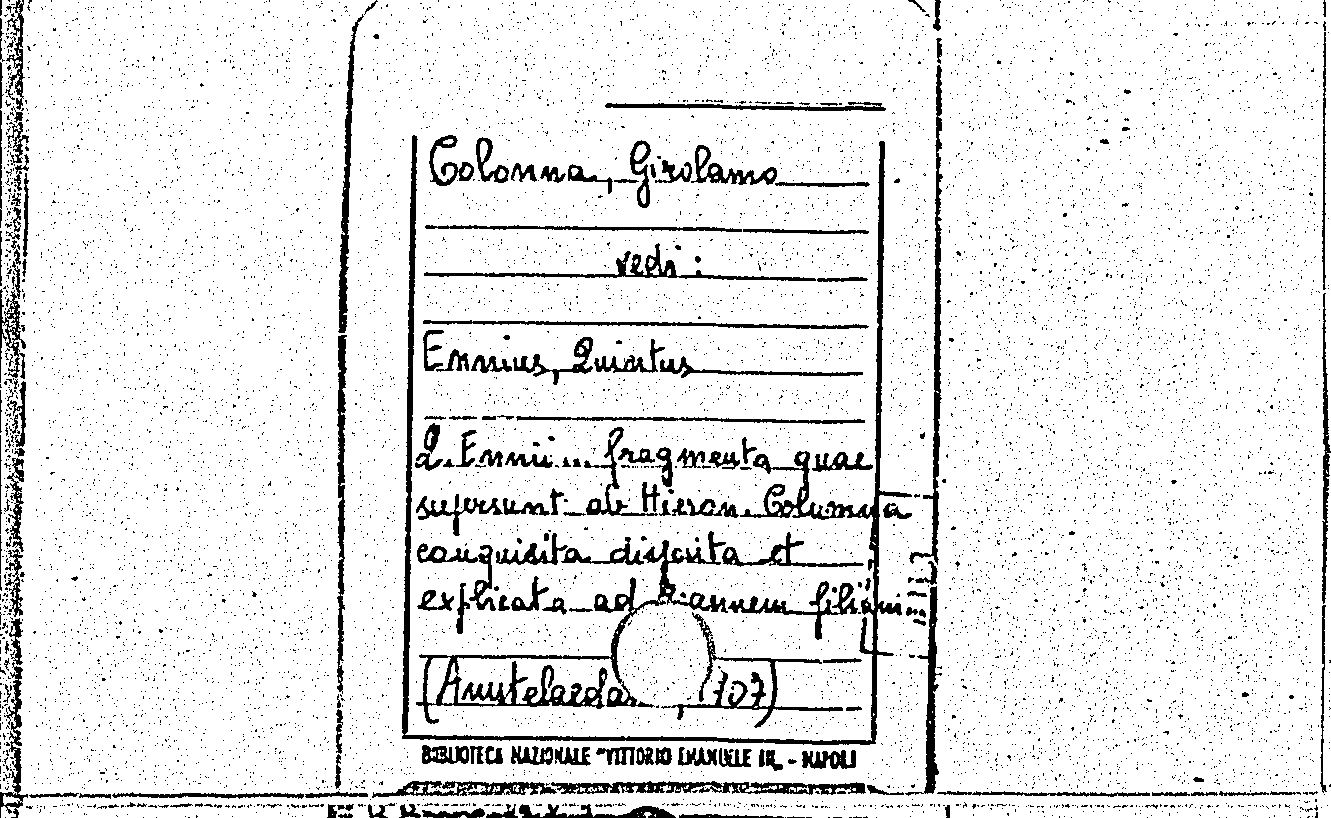 Colonna, Girolamo
vedi :
Ennius, Quintus
Q. Ennii... fragmenta quae
supersunt ab Hieron. Columna
conquisita disposita et
explicata ad filium
(Amstelaeda , 1707)
BIBLIOTECA NAZIONALE "VITTORIO EMANUELE III„ - NAPOLI